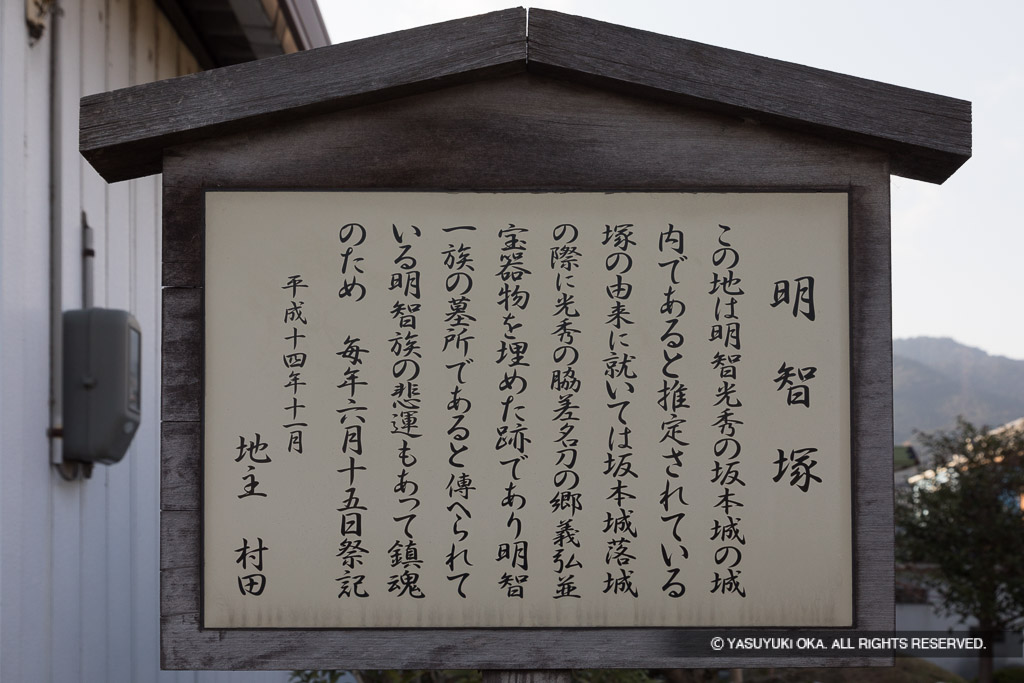 明智塚
この地は明智光秀の坂本城の城
内であると推定されている
塚の由来に就いては坂本城落城
の際に光秀の脇差名刀の郷義弘並
宝器物を埋めた跡であり明智
一族の墓所であると傳へられて
いる明智族の悲運もあって鎮魂
のため　毎年六月十五日祭記
平成十四年十一月
地主　村田
© YASUYUKI OKA. ALL RIGHTS RESERVED.